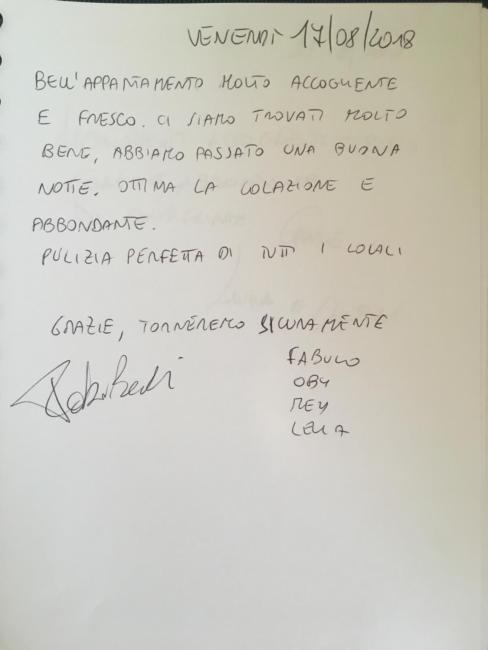 VENERDÌ 17/08/2018
BELL'APPARTAMENTO MOLTO ACCOGLIENTE
E FRESCO. CI SIAMO TROVATI MOLTO
BENE, ABBIAMO PASSATO UNA BUONA
NOTTE. OTTIMA LA COLAZIONE E
ABBONDANTE.
PULIZIA PERFETTA DI TUTTI I LOCALI
GRAZIE, TORNEREMO SICURAMENTE
OBY
LELLA